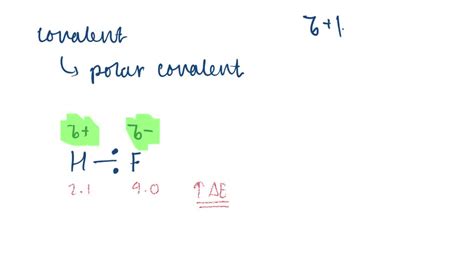 covalent
δ+/
↳ polar covalent
δ+ δ-
H — : F
2.1 4.0 ↑ ΔE